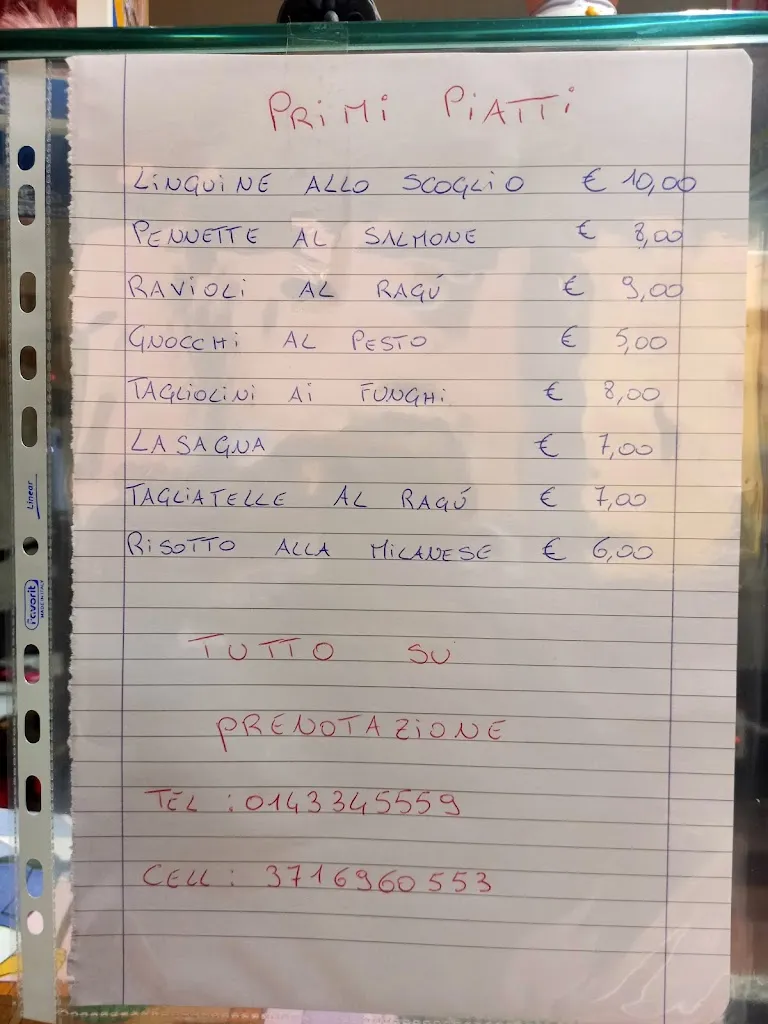 PRIMI PIATTI
LINGUINE ALLO SCOGLIO € 10,00
PENNETTE AL SALMONE € 8,00
RAVIOLI AL RAGÚ € 9,00
GNOCCHI AL PESTO € 5,00
TAGLIOLINI AI FUNGHI € 8,00
LASAGNA € 7,00
TAGLIATELLE AL RAGÚ € 7,00
RISOTTO ALLA MILANESE € 6,00
TUTTO SU
PRENOTAZIONE
TEL : 0143345559
CELL : 3716960553
Linear
Favorit
MADE IN ITALY